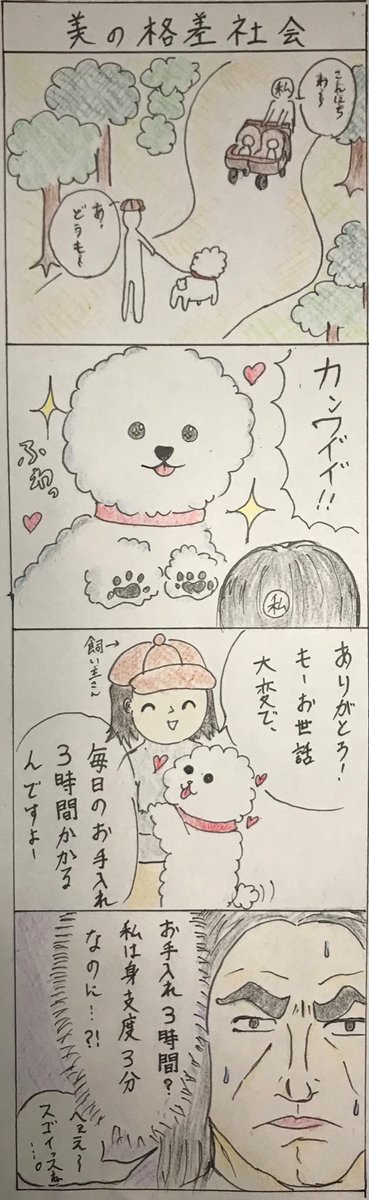 美の格差社会
こんにち
わ〜
私
あ、
どうも〜
カンワイイ!!
ふわっ
私
ありがとう!
もーお世話
大変で、
飼い主さん
→
毎日のお手入れ
3時間かかる
んですよー
お手入れ3時間?
私は身支度3分
なのに…?!
へぇえ〜
スゴイッスね
…。